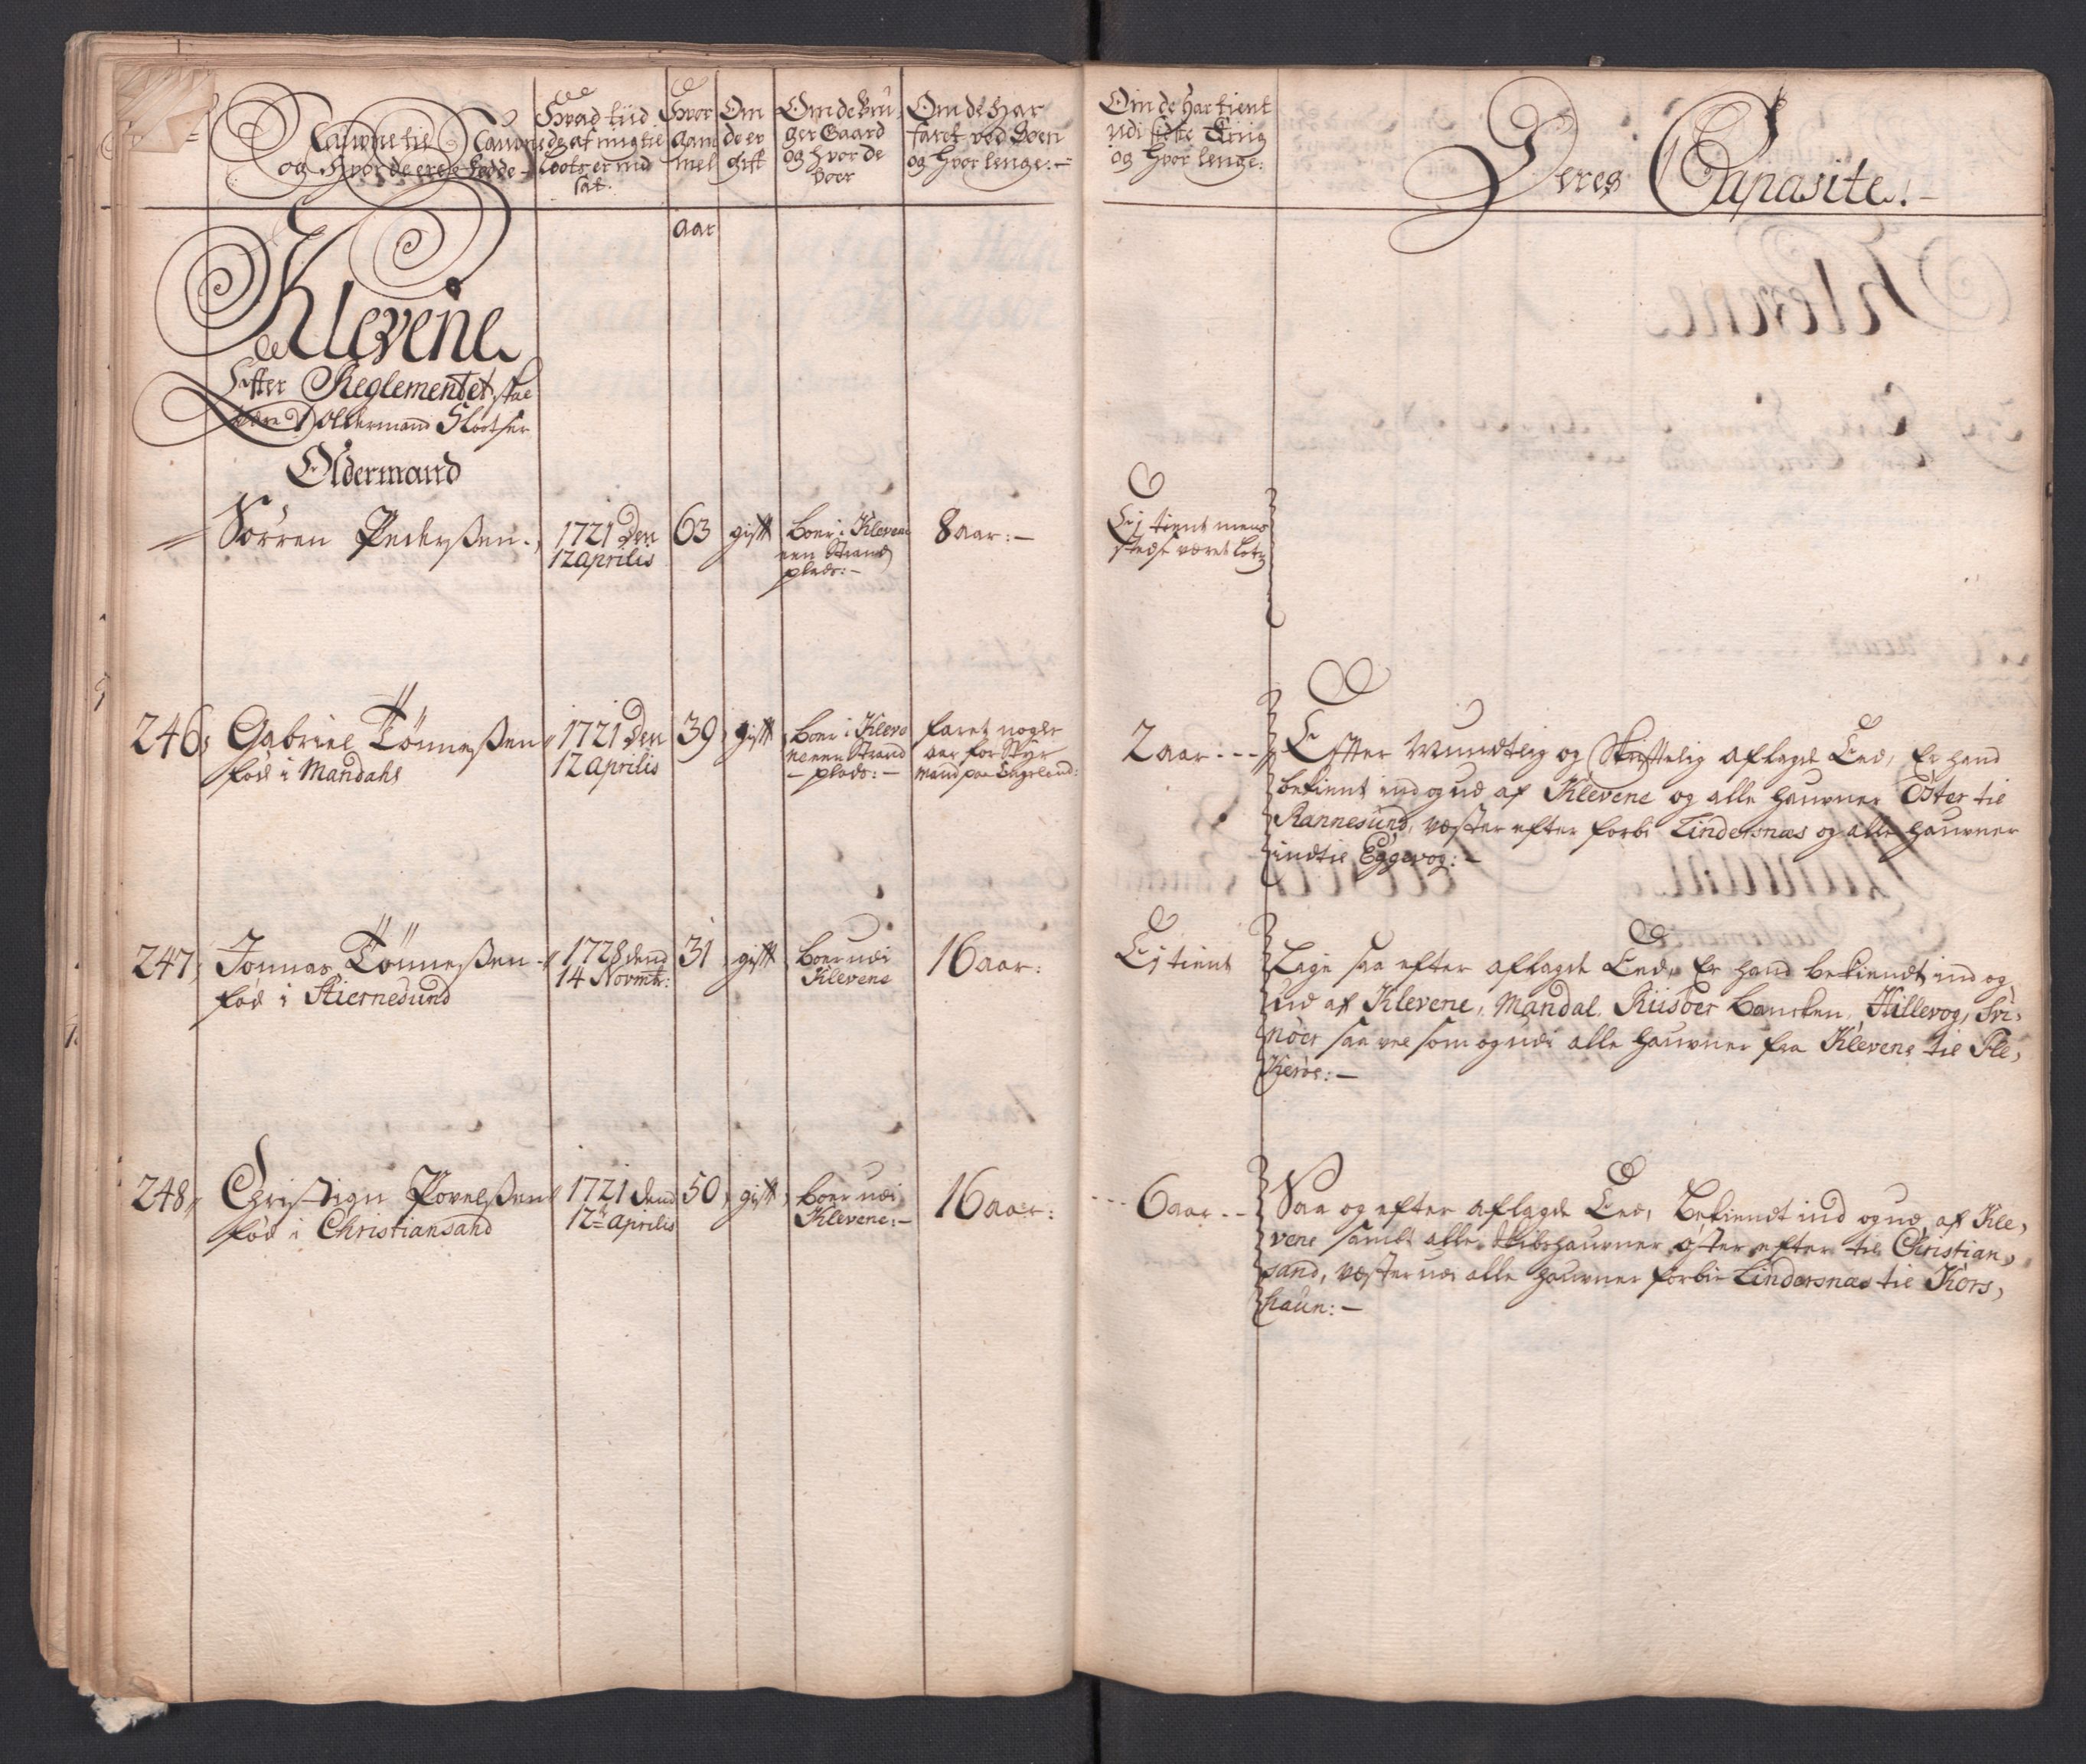 Naufne til Naufn
og Hvor de er e fødde
Hvad tiid
de af mig til
Loots er ind
sat.
Hvor
Gam
mel
Om
de er
Gift
Om de bru,
ger Gaard
og Hvor de
boer
Om de Har
faret ved Søen
og Hvor lenge:-
Om de Har tient
udi sidste Krig
og Hvor lenge:
Deres Capasite:-
aar
Klevene
Efter Reglementet skal
være 1 Oldermand 5 Lootser
Oldermand
Sørren Pedersen.,
1721 Den
12 aprilis
63
gift
boer i Klevene
een Strand
plads:-
8 aar:-
Ej tient mens
stedse været Lots
246,
Gabriel Tønnesen
fød i Mandahl
1721 Den
12 aprilis
39
gift
boer i Kleve
ne een Strand
- plads:-
faret nogle
aar for Styr
mand paa Engeland:
2 aar:--
Efter Mundtlig og Skriftelig aflagde Eed, Er hand
bekient ind og ud af Klevene og alle hauvner Öster til
Rannesund, væster efter forbi Lindersnæs og alle hauvner
indtil Eggevog:-
247,
Jonnas Tønnesen
fød i Stiernesund
1728 dend
14 Novmbr:
31
gift
boer udi
Klevene
16 aar:
Ej tient
Lige saa efter aflagde Eed, Er hand bekiendt ind og
ud af Klevene, Mandal, Riisöer Bancken, Hillevog, Svi,
nöer saa vel som og udi alle hauvner fra Klevene til Fle,
Keröe:-
248,
Christign Povelsen
fød i Christiansand
1721 dend
12te aprilis
50
gift
boer udi
Klevene:-
16 aar:
--- 6 aar --
Saa og efter aflagde Eed, Bekiendt ind og ud af Kle,
vene samt alle Skibshauvner øster efter til Christian,
sand, væster udi alle hauvner forbi Lindersnæs til Kors,
haun:-